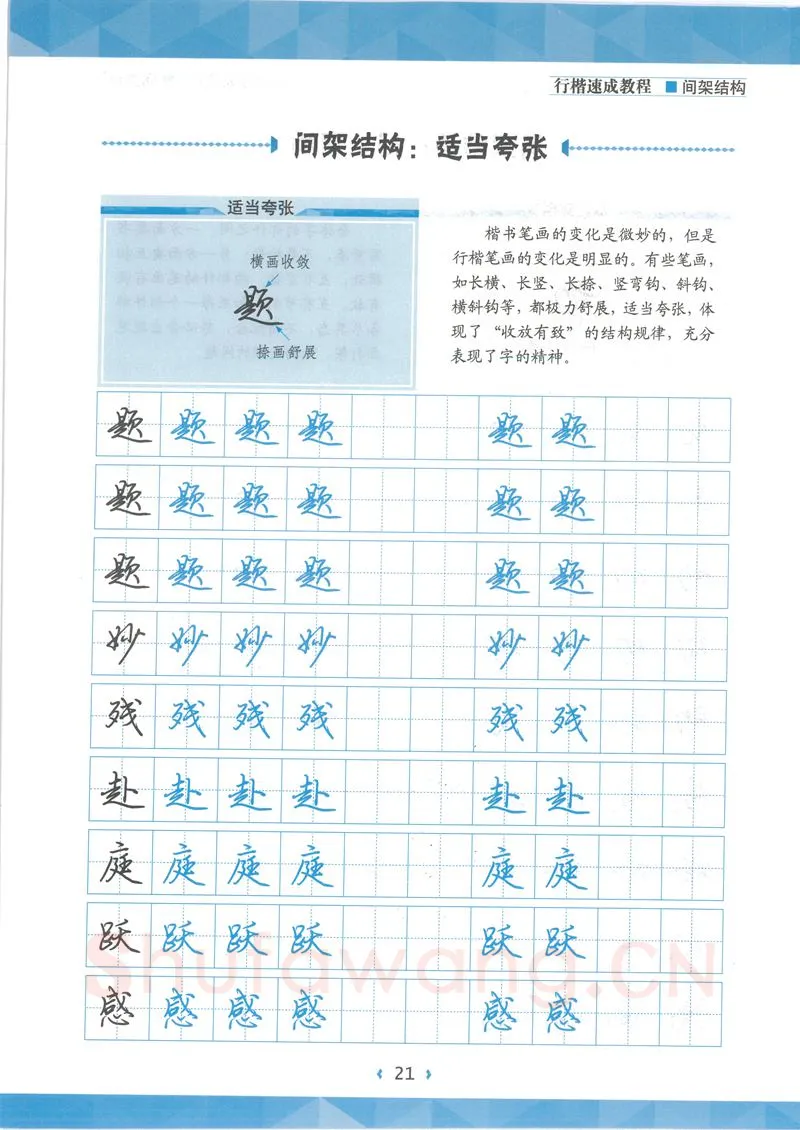 行楷速成教程 ■ 间架结构
间架结构：适当夸张
适当夸张
横画收敛
题
捺画舒展
楷书笔画的变化是微妙的，但是
行楷笔画的变化是明显的。有些笔画，
如长横、长竖、长捺、竖弯钩、斜钩、
横斜钩等，都极力舒展，适当夸张，体
现了“收放有致”的结构规律，充分
表现了字的精神。
题 题 题 题 题 题
题 题 题 题 题 题
题 题 题 题 题 题
妙 妙 妙 妙 妙 妙
残 残 残 残 残 残
赴 赴 赴 赴 赴 赴
庭 庭 庭 庭 庭 庭
跃 跃 跃 跃 跃 跃
Shufawang.CN
感 感 感 感 感 感
21